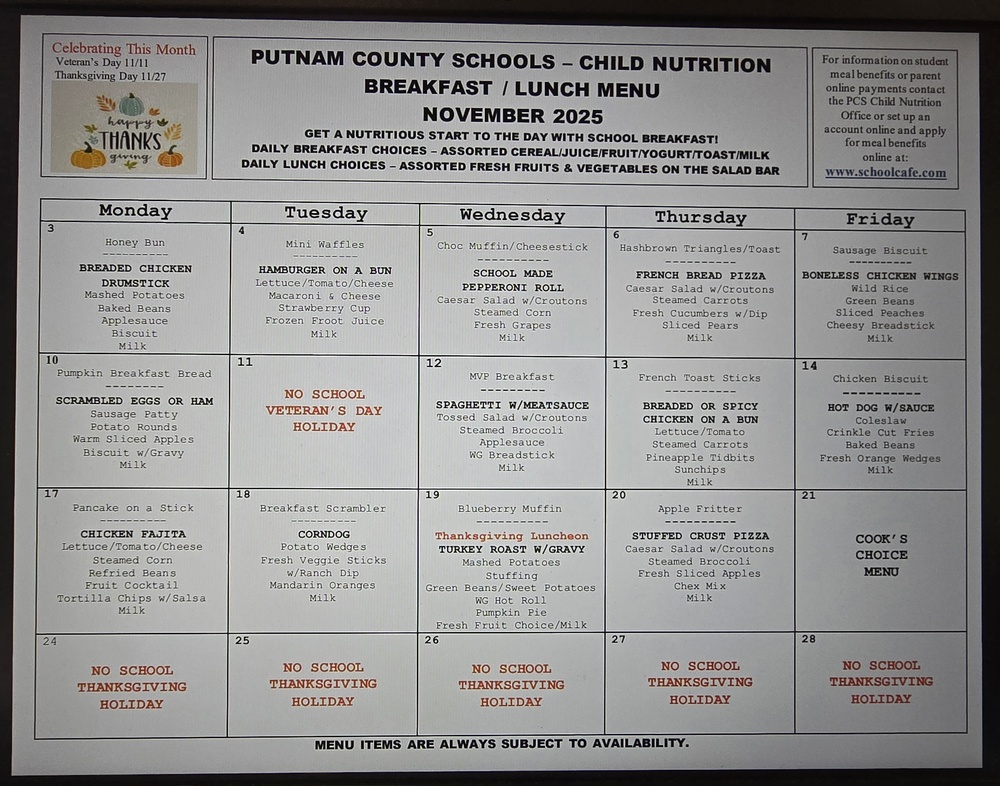 Celebrating This Month
Veteran's Day 11/11
Thanksgiving Day 11/27
happy
THANKS
giving
PUTNAM COUNTY SCHOOLS – CHILD NUTRITION
BREAKFAST / LUNCH MENU
NOVEMBER 2025
GET A NUTRITIOUS START TO THE DAY WITH SCHOOL BREAKFAST!
DAILY BREAKFAST CHOICES – ASSORTED CEREAL/JUICE/FRUIT/YOGURT/TOAST/MILK
DAILY LUNCH CHOICES – ASSORTED FRESH FRUITS & VEGETABLES ON THE SALAD BAR
For information on student
meal benefits or parent
online payments contact
the PCS Child Nutrition
Office or set up an
account online and apply
for meal benefits
online at:
www.schoolcafe.com
Monday
Tuesday
Wednesday
Thursday
Friday
3
Honey Bun
----------
BREADED CHICKEN
DRUMSTICK
Mashed Potatoes
Baked Beans
Applesauce
Biscuit
Milk
4
Mini Waffles
----------
HAMBURGER ON A BUN
Lettuce/Tomato/Cheese
Macaroni & Cheese
Strawberry Cup
Frozen Froot Juice
Milk
5
Choc Muffin/Cheesestick
----------
SCHOOL MADE
PEPPERONI ROLL
Caesar Salad w/Croutons
Steamed Corn
Fresh Grapes
Milk
6
Hashbrown Triangles/Toast
----------
FRENCH BREAD PIZZA
Caesar Salad w/Croutons
Steamed Carrots
Fresh Cucumbers w/Dip
Sliced Pears
Milk
7
Sausage Biscuit
----------
BONELESS CHICKEN WINGS
Wild Rice
Green Beans
Sliced Peaches
Cheesy Breadstick
Milk
10
Pumpkin Breakfast Bread
--------
SCRAMBLED EGGS OR HAM
Sausage Patty
Potato Rounds
Warm Sliced Apples
Biscuit w/Gravy
Milk
11
NO SCHOOL
VETERAN'S DAY
HOLIDAY
12
MVP Breakfast
---------
SPAGHETTI W/MEATSAUCE
Tossed Salad w/Croutons
Steamed Broccoli
Applesauce
WG Breadstick
Milk
13
French Toast Sticks
---------
BREADED OR SPICY
CHICKEN ON A BUN
Lettuce/Tomato
Steamed Carrots
Pineapple Tidbits
Sunchips
Milk
14
Chicken Biscuit
----------
HOT DOG W/SAUCE
Coleslaw
Crinkle Cut Fries
Baked Beans
Fresh Orange Wedges
Milk
17
Pancake on a Stick
----------
CHICKEN FAJITA
Lettuce/Tomato/Cheese
Steamed Corn
Refried Beans
Fruit Cocktail
Tortilla Chips w/Salsa
Milk
18
Breakfast Scrambler
----------
CORNDOG
Potato Wedges
Fresh Veggie Sticks
w/Ranch Dip
Mandarin Oranges
Milk
19
Blueberry Muffin
----------
Thanksgiving Luncheon
TURKEY ROAST W/GRAVY
Mashed Potatoes
Stuffing
Green Beans/Sweet Potatoes
WG Hot Roll
Pumpkin Pie
Fresh Fruit Choice/Milk
20
Apple Fritter
----------
STUFFED CRUST PIZZA
Caesar Salad w/Croutons
Steamed Broccoli
Fresh Sliced Apples
Chex Mix
Milk
21
COOK'S
CHOICE
MENU
24
NO SCHOOL
THANKSGIVING
HOLIDAY
25
NO SCHOOL
THANKSGIVING
HOLIDAY
26
NO SCHOOL
THANKSGIVING
HOLIDAY
27
NO SCHOOL
THANKSGIVING
HOLIDAY
28
NO SCHOOL
THANKSGIVING
HOLIDAY
MENU ITEMS ARE ALWAYS SUBJECT TO AVAILABILITY.